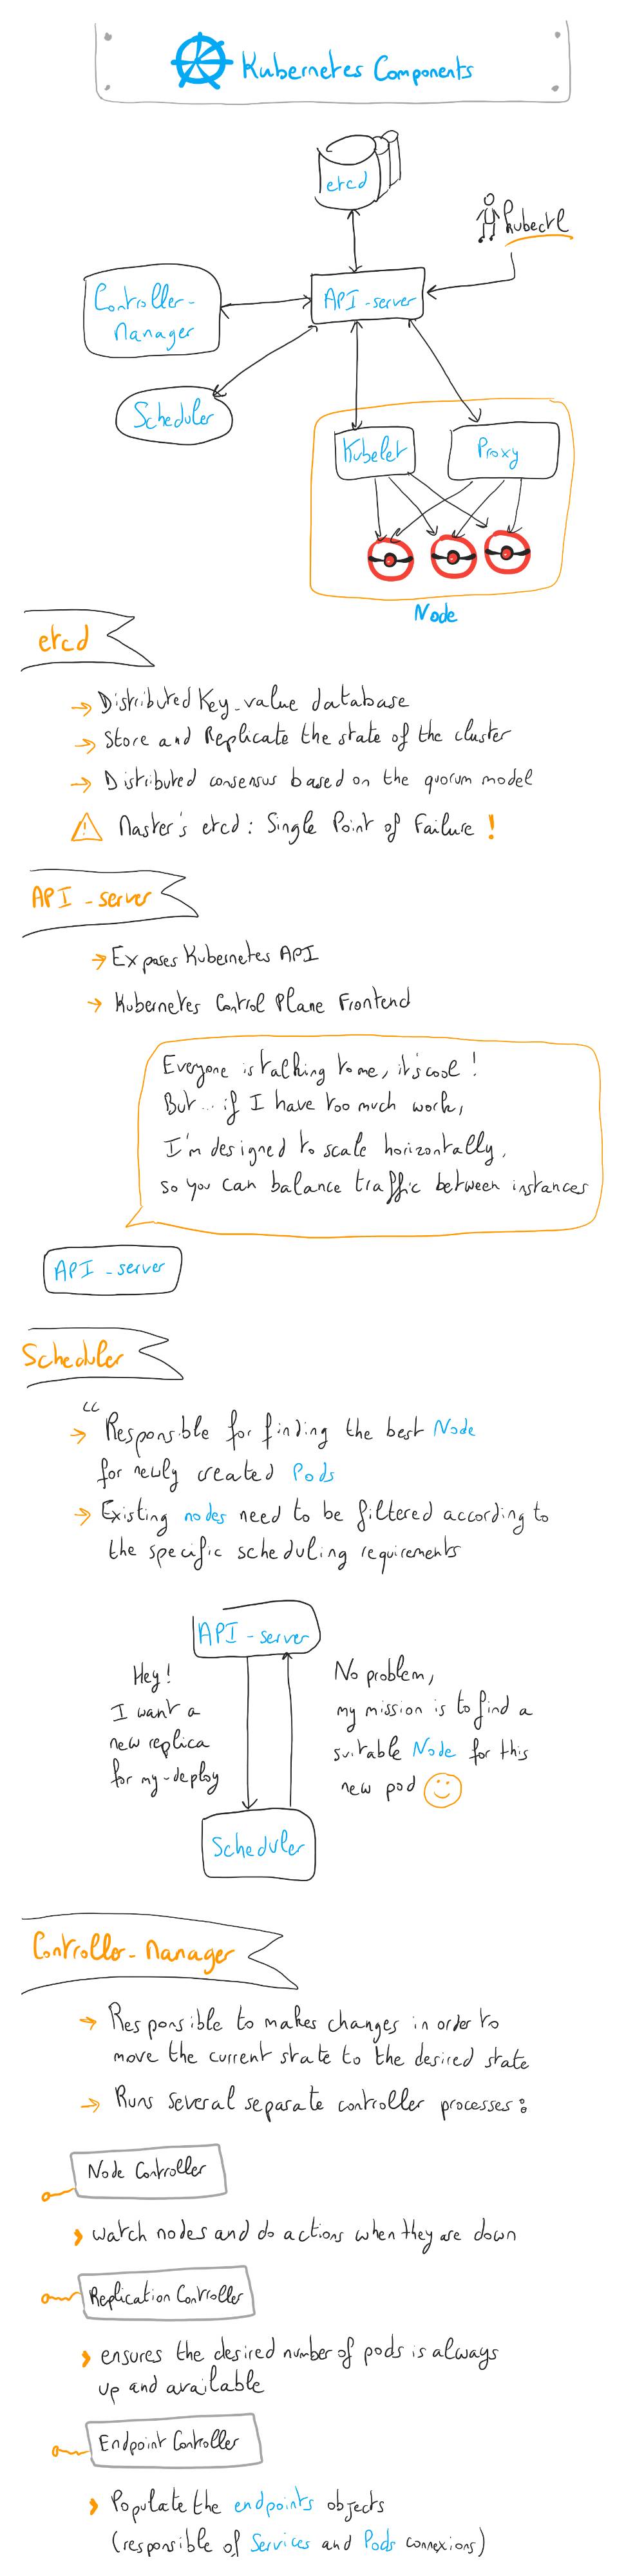 Kubernetes Components
etcd
kubectl
API-server
Controller-
Manager
Scheduler
Kubelet
Proxy
Node
etcd
→ Distributed Key-value database
→ Store and Replicate the state of the cluster
→ Distributed consensus based on the quorum model
⚠ Master's etcd : Single Point of Failure !
API-server
→ Exposes Kubernetes API
→ Kubernetes Control Plane Frontend
Everyone is talking to me, it's cool !
But... if I have too much work,
I'm designed to scale horizontally,
so you can balance traffic between instances
API-server
Scheduler
“
→ Responsible for finding the best Node
for newly created Pods
→ Existing nodes need to be filtered according to
the specific scheduling requirements
API-server
Hey!
I want a
new replica
for my-deploy
No problem,
my mission is to find a
suitable Node for this
new pod
Scheduler
Controller-Manager
→ Responsible to makes changes in order to
move the current state to the desired state
→ Runs several separate controller processes :
Node Controller
> watch nodes and do actions when they are down
Replication Controller
> ensures the desired number of pods is always
up and available
Endpoint Controller
> Populate the endpoints objects
(responsible of Services and Pods connexions)